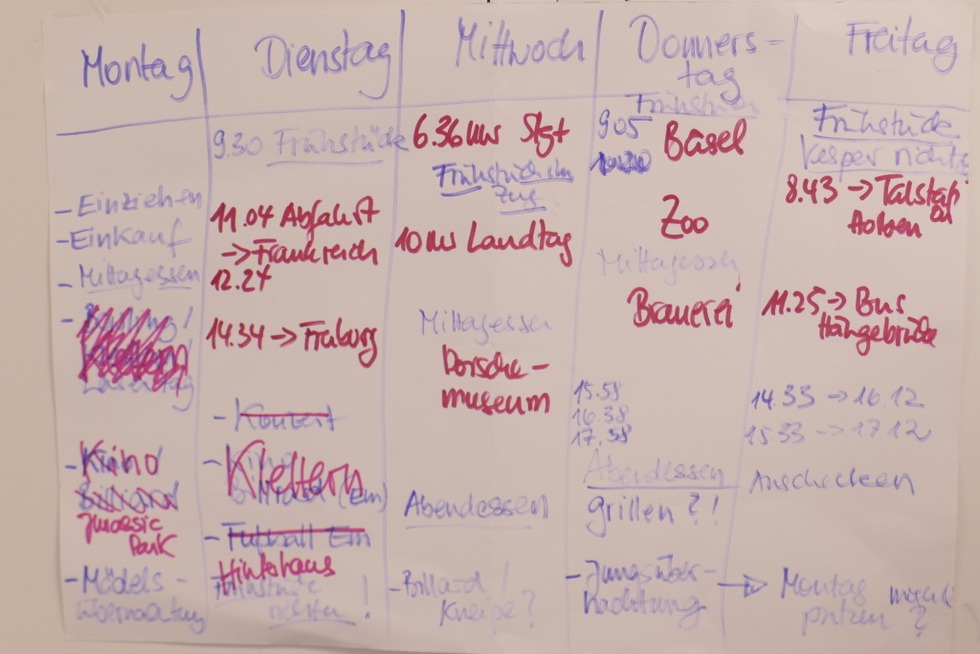 Montag
- Einziehen
- Einkauf
- Mittagessen
-
Lasertag
- Kino
Billiard
Jurassic
Park
- Mädels -
übernachtung
Dienstag
9.30 Frühstück
11.04 Abfahrt
-> Frankreich
12.24
14.34 -> Freiburg
- Konzert
- Klettern
(Em)
- Fußball Em
Hinterhaus
!
Mittwoch
6.36 Uhr Stgt
Frühstück im
Zug
10 Uhr Landtag
Mittagessen
Porsche-
museum
Abendessen
- Billard!
Kneipe?
Donners-
tag
Frühstück
905 Basel
Zoo
Mittagessen
Brauerei
15.59
16.38
17.38
Abendessen
grillen?!
- Jungsüber-
nachtung
Freitag
Frühstück
Vesper richten
8.43 -> Talstat
11.25 -> Bus
Hängebrücke
14.33 -> 16.12
15.33 -> 17.12
Anschecken
-> Montag
putzen ?